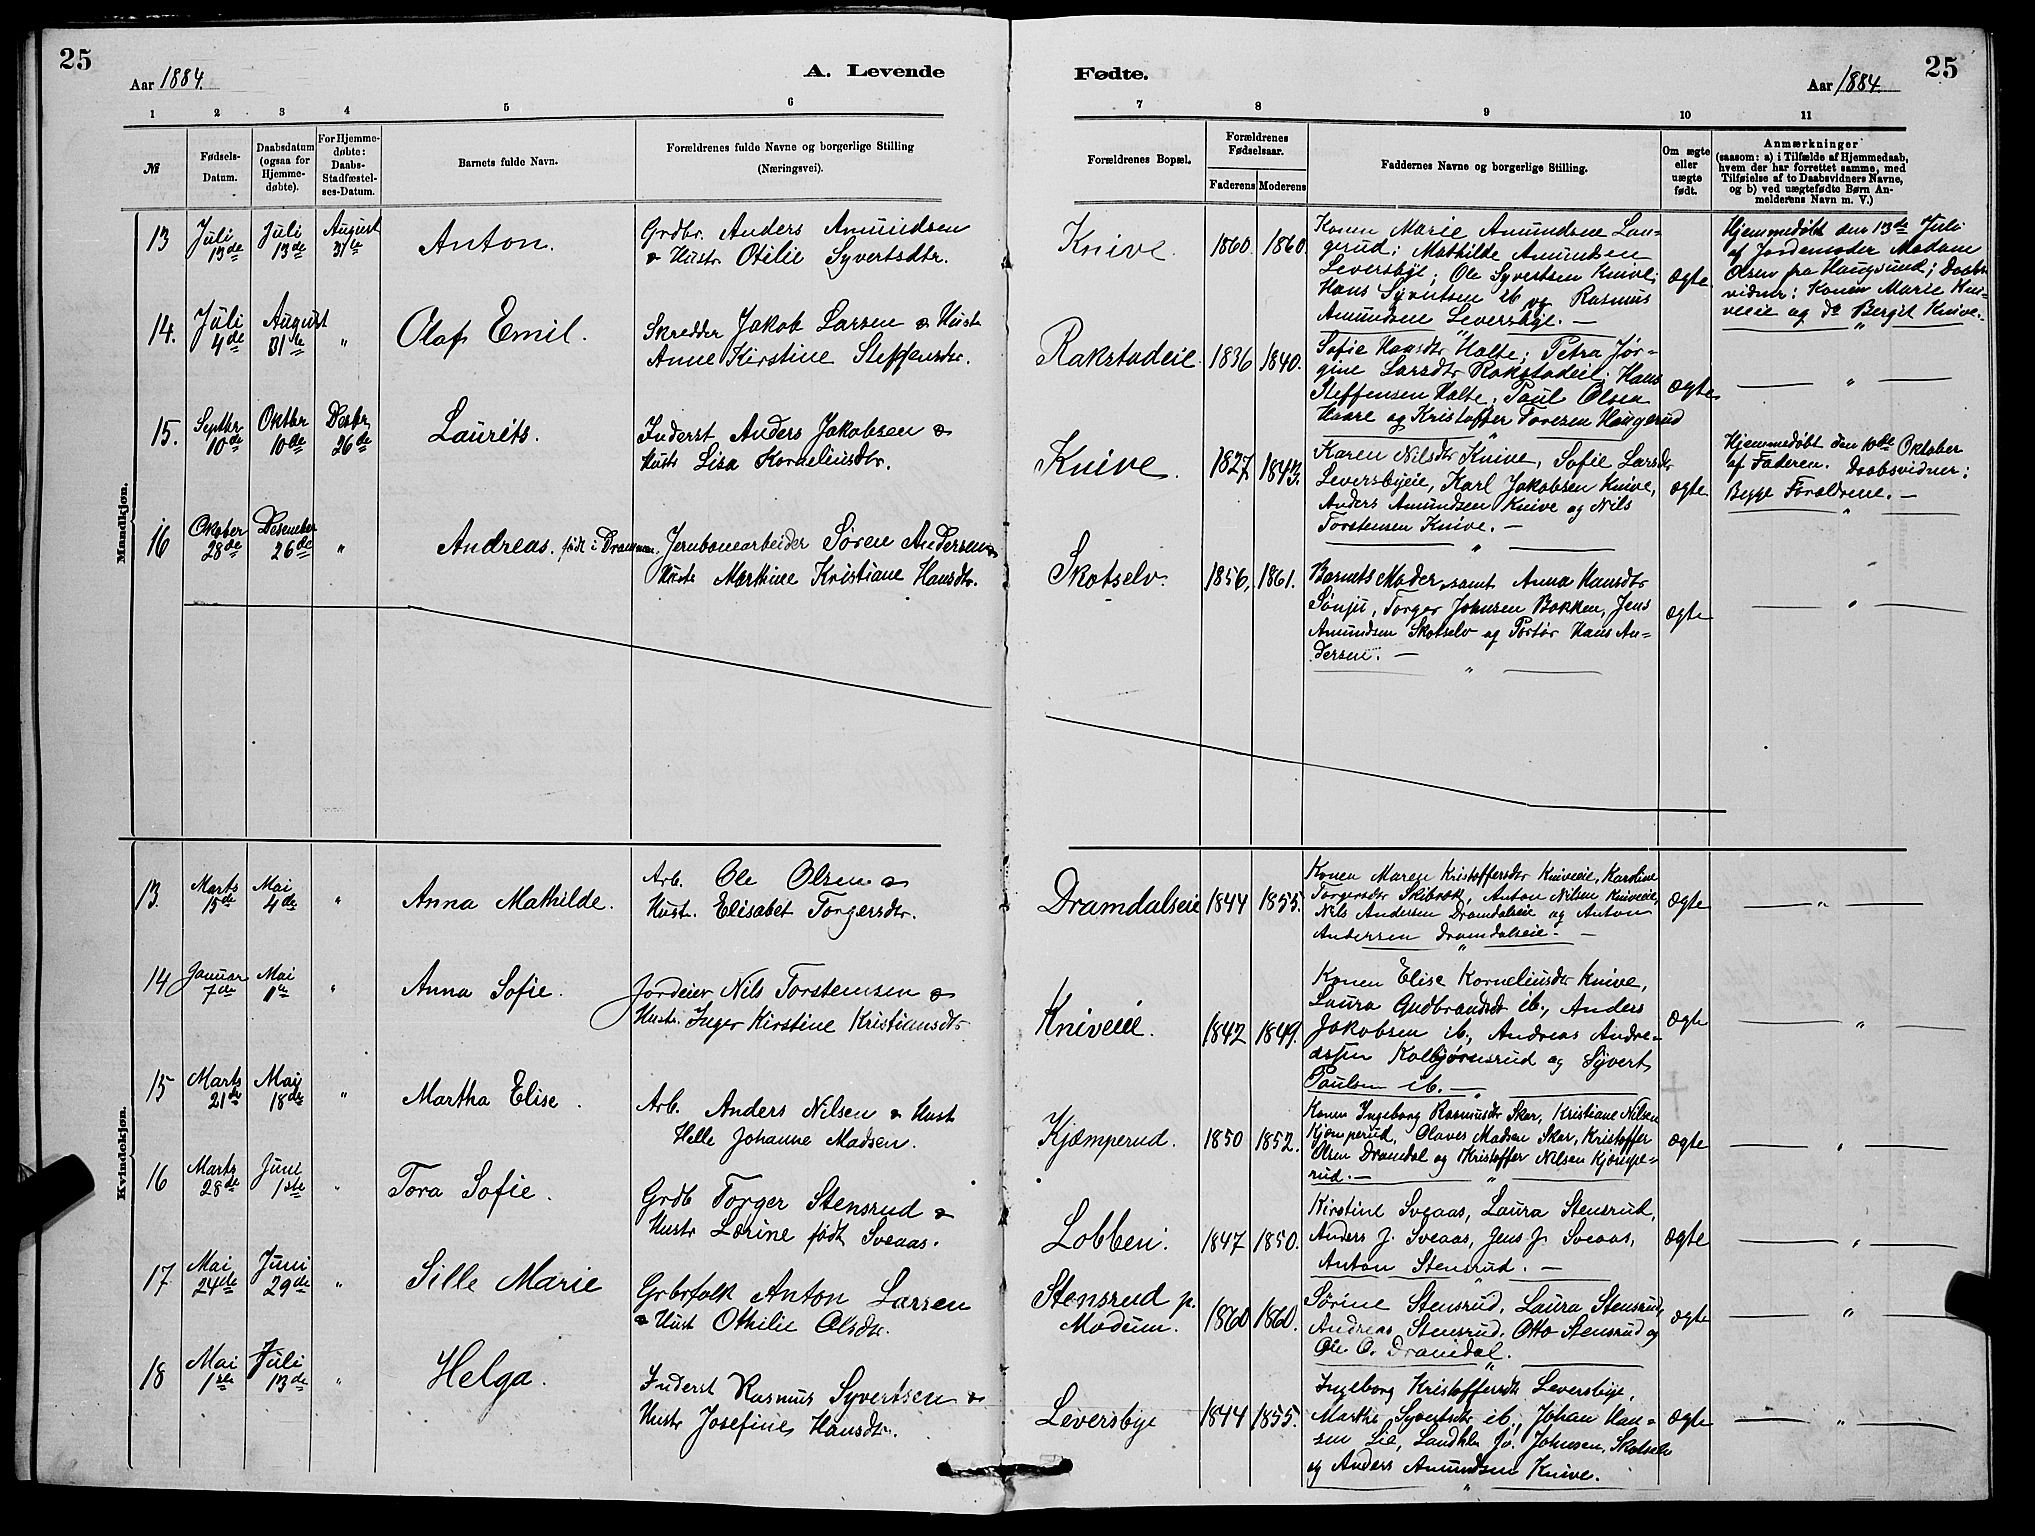 25
Aar 1884.
A. Levende
1 2 3 4 5 6
№
Fødsels-
Datum.
Daabsdatum
(ogsaa for
Hjemme-
døbte).
For Hjemme-
døbte:
Daabs-
Stadfæstel-
ses-Datum.
Barnets fulde Navn.
Forældrenes fulde Navne og borgerlige Stilling
(Næringsvei).
Mandkjøn.
13 Juli 13de Juli 13de August 31te Anton. Grdbr. Anders Amundsen
& Hustr Otilie Syvertsdtr.
14. Juli 4de August 31te " Olaf Emil. Skredder Jakob Larsen & Hust
Anne Kirstine Steffensdtr.
15. Septbr 10de Oktbr 10de Desbr 26de Laurits. Inderst Anders Jakobsen &
Hustr Lisa Korneliusdtr.
16 Oktober 28de Desember 26de " Andreas. født i Drammen. Jernbanearbeider Søren Andersen &
Hustr Marthine Kristiane Hansdtr.
Kvindekjøn.
13. Marts 15de Mai 4de " Anna Mathilde. Arb. Ole Olsen &
Hust. Elisabet Torgersdtr.
14 Januar 7de Mai 1te " Anna Sofie. Jordeier Nils Torstensen &
Hustr. Inger Kirstine Kristiansdtr
15 Marts 21de Mai 18de " Martha Elise. Arb. Anders Nilsen & Hust
Helle Johanne Madsen.
16 Marts 28de Juni 1ste " Tora Sofie. Grdb Torger Stensrud &
Hustr Lorine født Sveaas.
17 Mai 24de Juni 29de " Sille Marie Grbrfolk Anton Larsen
& Hust Othilie Olsdtr.
18 Mai 1ste Juli 13de " Helga. Inderst Rasmus Syvertsen &
Hustr Josefine Hansdtr.
Fødte.
Aar 1884.
25
7 8 9 10 11
Forældrenes Bopæl.
Forældrenes
Fødselsaar.
Faderens Moderens
Faddernes Navne og borgerlige Stilling.
Om ægte
eller
uægte
født.
Anmærkninger
(saasom: a) i Tilfælde af Hjemmedaab,
hvem der har forrettet samme, med
Tilføielse af to Daabsvidners Navne,
og b) ved uægtefødte Børn An-
melderens Navn m. V.)
Knive. 1860. 1860.
Konen Marie Amundsen Lan-
gerud; Mathilde Amundsen
Leversbye; Ole Syvertsen Knive;
Hans Syvertsen ib og Rasmus
Amundsen Leversbye. —
ægte.
Hjemmedøbt den 13de Juli
af Jordemoder Madam
Olsen fra Haugsund; Daabs-
vidner: Konen Marie Kni-
veeie og do Bergit Knive.
Rakstadeie. 1836 1840.
Sofie Hansdtr Holte; Petra Jør-
gine Larsdtr Rakstadeie. Hans
Steffensen Holte. Paul Olsen
Haare og Kristoffer Toresen Haugerud
ægte "
Knive. 1827 1843.
Karen Nilsdtr Knive, Sofie Larsdtr
Leversbyeie, Karl Jakobsen Knive,
Anders Amundsen Knive og Nils
Torstensen Knive. —
ægte
Hjemmedøbt den 10de Oktober
af Faderen. Daabsvidner:
Begge Forældrene. —
Skotselv. 1856, 1861.
Barnets Moder samt Anna Hansdtr
Sønju, Torger Johnsen Bakken, Jens
Amundsen Skotselv og Portør Hans An-
dersen. —
ægte "
Dramdalseie 1844 1855.
Konen Maren Kristoffersdtr Kniveie, Karoline
Torgersdtr Skibræk, Anton Nilsen Kniveeie,
Nils Andersen Dramdalseie og Anton
Andersen Dramdalseie. —
ægte "
Kniveeie. 1842 1849.
Konen Elise Korneliusdtr Knive,
Laura Gudbrandsdt ib., Anders
Jakobsen ib., Andreas Andre-
assen Kolbjørnsrud og Syvert
Paulsen ib. —
ægte "
Kjæmperud. 1850 1852.
Konen Ingeborg Rasmusdtr Skar, Kristiane Nilsen
Kjæmperud, Olaves Madsen Skar, Kristoffer
Olsen Dramdal og Kristoffer Nilsen Kjæmpe-
rud. —
ægte "
Lobben. 1847 1850.
Kirstine Sveaas, Laura Stensrud,
Anders J. Sveaas, Jens J. Sveaas,
Anton Stensrud. —
ægte "
Stensrud p.
Modum. 1860 1860.
Sørine Stensrud, Laura Stensrud,
Andreas Stensrud, Otto Stensrud og
Ole O. Dramdal.
ægte "
Leversbye 1844 1855.
Ingeborg Kristoffersdtr Leversbye,
Marthe Syvertsdtr ib., Johan Han-
sen Lie, Landhl. Jo. Johnsen, Skotselv
og Anders Amundsen Knive.
ægte "